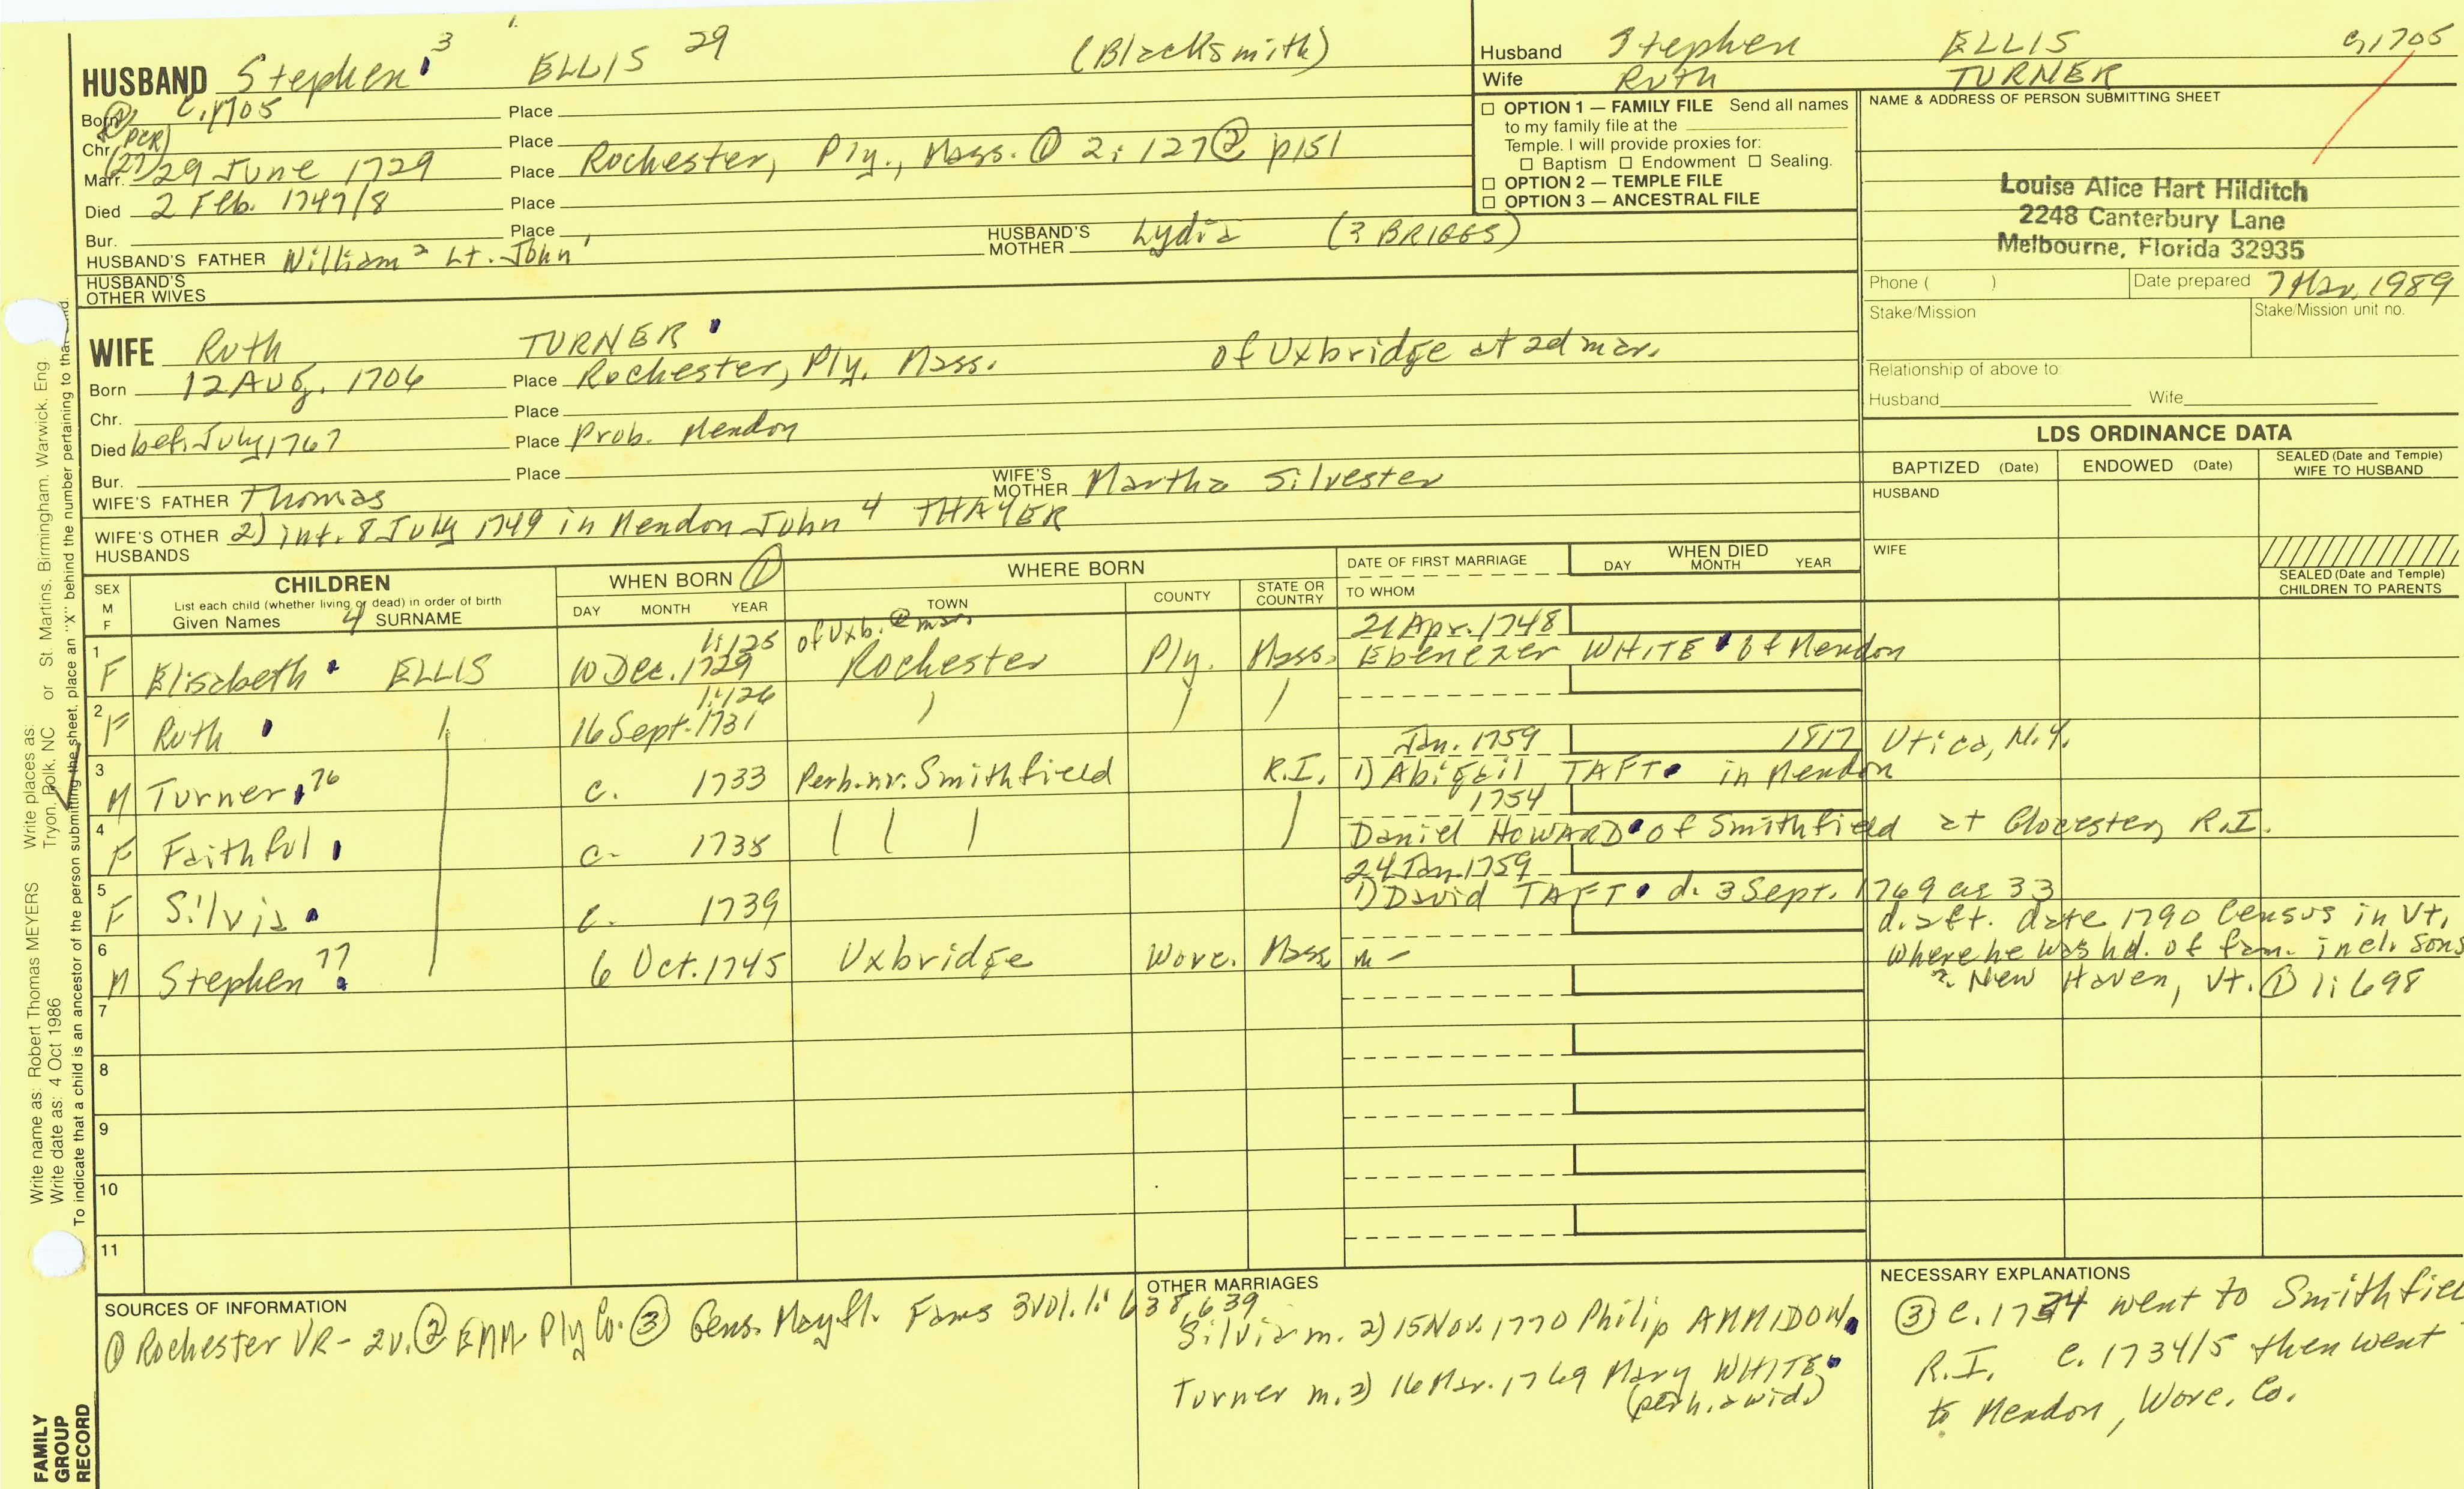 HUSBAND Stephen 3 ELLIS 29 (Blacksmith)
Born c. 1705 Place
Chr. Place
(PCR)
Marr. (27) 29 June 1729 Place Rochester, Ply., Mass. ① 2:127 ② p151
Died 2 Feb. 1747/8 Place
Bur. Place
HUSBAND'S FATHER William 2 Lt. John 1 HUSBAND'S MOTHER Lydia (? BRIGGS)
HUSBAND'S OTHER WIVES
WIFE Ruth TURNER of Uxbridge at 2d mar.
Born 12 Aug. 1706 Place Rochester, Ply. Mass.
Chr. Place
Died bef. July 1767 Place Prob. Mendon
Bur. Place
WIFE'S FATHER Thomas WIFE'S MOTHER Martha Silvester
WIFE'S OTHER HUSBANDS 2) int. 8 July 1749 in Mendon John 4 THAYER
Husband Stephen ELLIS c, 1705
Wife Ruth TURNER
☐ OPTION 1 — FAMILY FILE Send all names
to my family file at the
Temple. I will provide proxies for:
☐ Baptism ☐ Endowment ☐ Sealing.
☐ OPTION 2 — TEMPLE FILE
☐ OPTION 3 — ANCESTRAL FILE
NAME & ADDRESS OF PERSON SUBMITTING SHEET
Louise Alice Hart Hilditch
2248 Canterbury Lane
Melbourne, Florida 32935
Phone ( ) Date prepared 7 Mar. 1989
Stake/Mission Stake/Mission unit no.
Relationship of above to:
Husband Wife
LDS ORDINANCE DATA
BAPTIZED (Date) ENDOWED (Date) SEALED (Date and Temple) WIFE TO HUSBAND
HUSBAND
WIFE
SEALED (Date and Temple) CHILDREN TO PARENTS
SEX M F
CHILDREN
List each child (whether living or dead) in order of birth
Given Names 4 SURNAME
WHEN BORN ①
DAY MONTH YEAR
WHERE BORN
TOWN COUNTY STATE OR COUNTRY
DATE OF FIRST MARRIAGE
TO WHOM
WHEN DIED
DAY MONTH YEAR
1:125 of Uxb. @ mar. 21 Apr. 1748
1 F Elisabeth ELLIS 10 Dec. 1729 Rochester Ply. Mass. Ebenezer WHITE of Mendon
1:126
2 F Ruth 16 Sept. 1731
Jan. 1759 1817 Utica, N.Y.
3 M Turner 76 c. 1733 Perh. nr. Smithfield R.I. 1) Abigail TAFT in Mendon
1754
4 F Faithful c. 1735 Daniel HOWARD of Smithfield at Glocester, R.I.
24 Jan 1759
5 F Silvia c. 1739 1) David TAFT d. 3 Sept. 1769 ae 33
6 M Stephen 77 6 Oct. 1745 Uxbridge Worc. Mass m -
d. aft. date 1790 Census in Vt.
where he was hd. of fam. incl. sons
? New Haven, Vt. ① 1:698
7
8
9
10
11
SOURCES OF INFORMATION
① Rochester VR - 2v. ② EMM Ply Co. ③ Gens. Mayfl. Fams 3 vol. 1: 638, 639
OTHER MARRIAGES
Silvia m. 2) 15 Nov. 1770 Philip AMMIDOWN
Turner m. 2) 16 Mar. 1769 Mary WHITE
(perh. a wid.)
NECESSARY EXPLANATIONS
③ c. 1734 went to Smithfiel
R.I. c. 1734/5 then went
to Mendon, Worc. Co.
Write name as: Robert Thomas MEYERS Write places as: Tryon, Polk, NC or St. Martins, Birmingham, Warwick, Eng.
Write date as: 4 Oct 1986
To indicate that a child is an ancestor of the person submitting the sheet, place an "X" behind the number pertaining to that
FAMILY
GROUP
RECORD